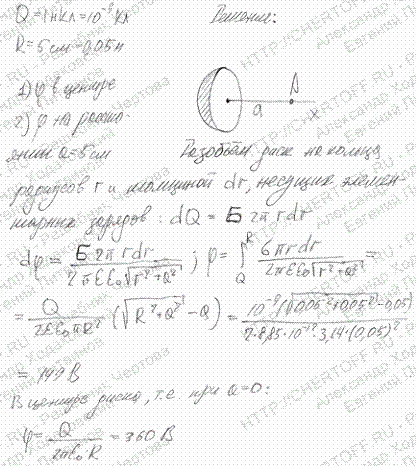 Q = 1 нКл = 10⁻⁹ Кл
Решение:
R = 5 см = 0,05 м
1) φ в центре
2) φ на рассто-
янии a = 5 см
A
a
x
Разобьём диск на кольца
радиусов r и толщиной dr, несущих элемен-
тарных зарядов: dQ = б 2π r dr
dφ = б 2π r dr / 2πεε₀√(r²+a²) ; φ = ∫ₐᴿ бπrdr / 2πεε₀√(r²+a²) =
= Q / 2εε₀πR² (√(R²+a²) - a) = 10⁻⁹(√(0,05²+0,05²) - 0,05) / 2·8,85·10⁻¹²·3,14·(0,05)²
= 149 В
В центре диска, т.е. при a=0:
φ = Q / 2πε₀·R = 360 В
HTTP://CHERTOFF.RU